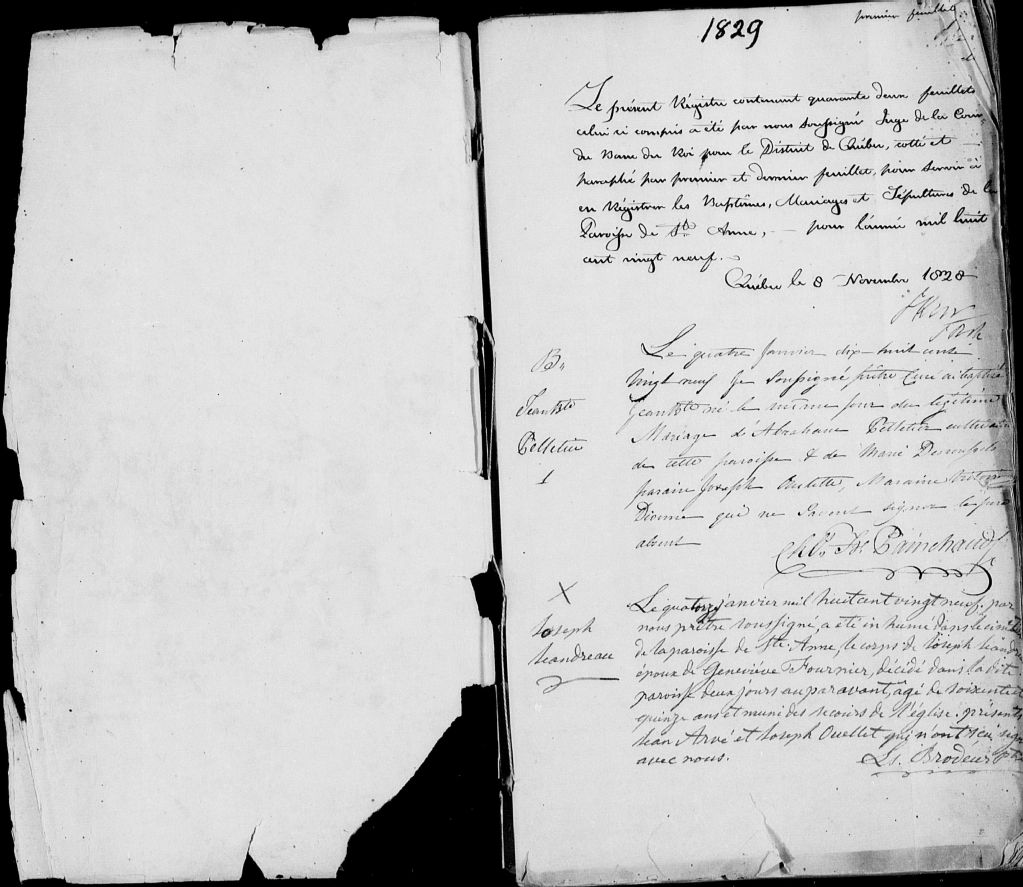 1829
premier feuillet
Le présent Régistre contenant quarante deux feuillets
celui ci compris a été par nous soussigné Juge de la Cour
du Banc du Roi pour le District de Québec, cotté et
paraphé par premier et dernier feuillet, pour servir à
en Régistrer les Baptêmes, Mariages et Sépultures de la
Paroisse de Ste Anne, — pour l'année mil huit
cent vingt neuf. —
Québec le 8 Novembre 1828
JKerr
B.
Jean Bte
Pelletier
1
Le quatre Janvier dix huit cent
vingt neuf Je Soussigné prêtre Curé ai baptisé
Jean Bte né le même jour du légitime
Mariage d'Abraham Pelletier cultivateur
de cette paroisse & de Marie
parain Joseph Ouelette, Maraine
Dionne qui ne savent signer le père
absent
Chs. Fs. Painchaud
X
Joseph
Jeandreau
Le quatorze janvier mil huit cent vingt neuf, par
nous prêtre soussigné, a été inhumé dans le cimetiè
de la paroisse de Ste Anne, le corps de Joseph Jeandr
époux de Geneviéve Fournier, décédé dans la dite
paroisse deux jours auparavant, agé de soixente et
quinze ans et muni des secours de l'église. présents
Jean Arvé et Joseph Ouellet qui n'ont scu signe
avec nous.
Ls. Brodeur ptre